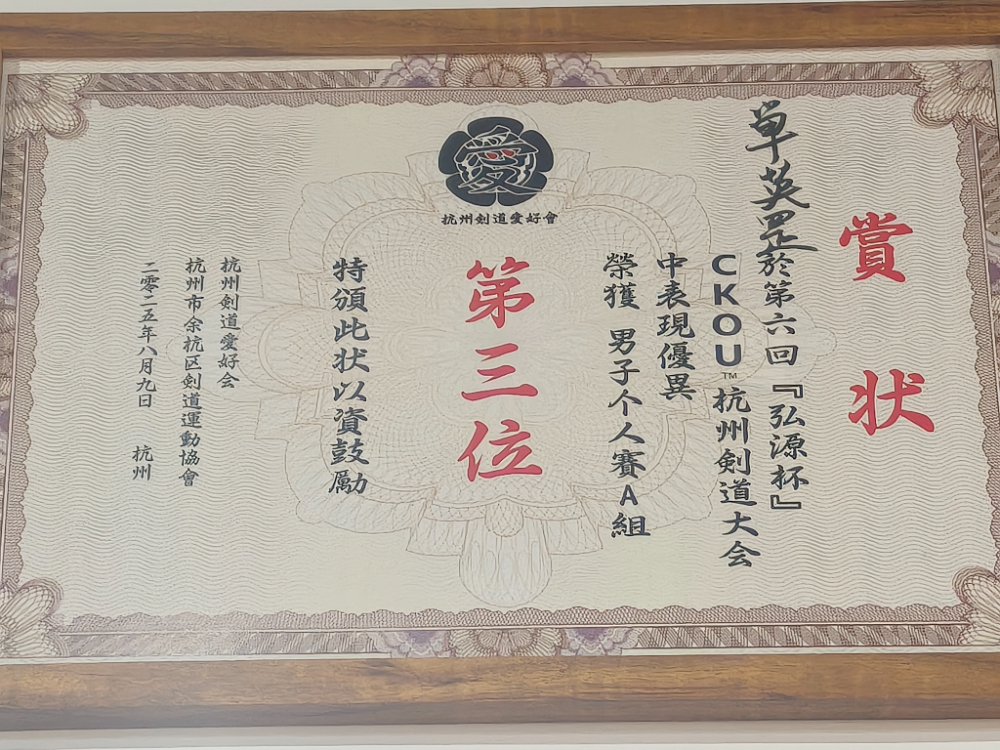 賞状
単英罡於第六回『弘源杯』
CKOU™杭州剣道大会
中表現優異
榮獲 男子个人賽A組
愛
杭州剣道愛好會
第三位
特頒此状以資鼓勵
杭州剣道愛好会
杭州市余杭区剣道運動協會
二零二五年八月九日 杭州